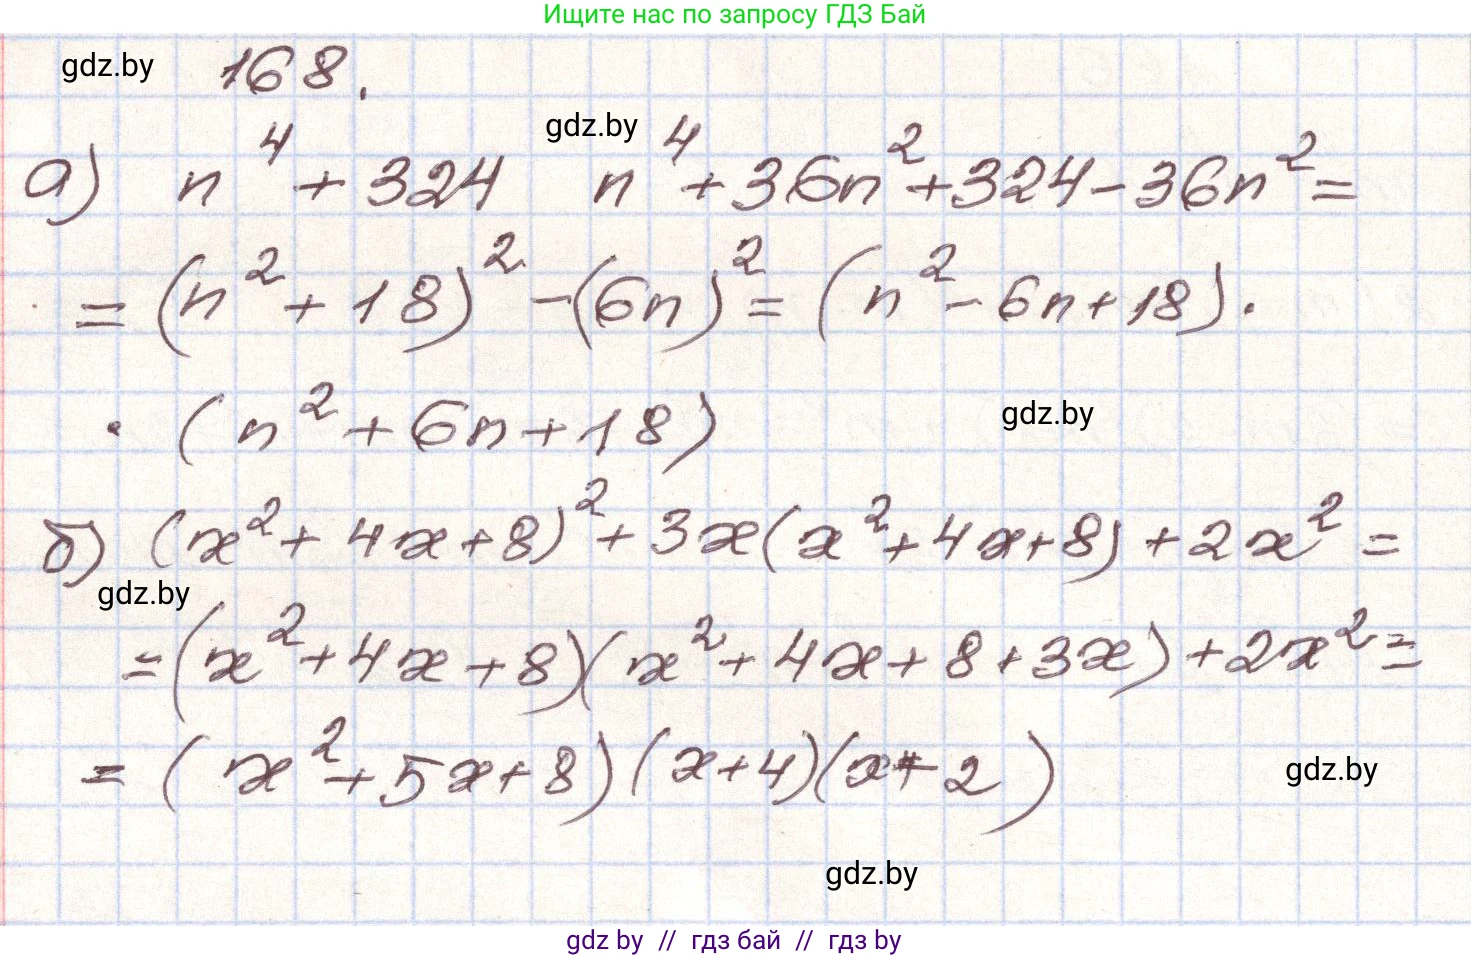 Ищите нас по запросу ГДЗ Бай
gdz.by 168.
gdz.by
а) n⁴ + 324 n⁴ + 36n² + 324 - 36n² =
= (n² + 18)² - (6n)² = (n² - 6n + 18) ·
· (n² + 6n + 18)
gdz.by
б) (x² + 4x + 8)² + 3x(x² + 4x + 8) + 2x² =
gdz.by
= (x² + 4x + 8)(x² + 4x + 8 + 3x) + 2x² =
= (x² + 5x + 8)(x + 4)(x + 2)
gdz.by
gdz.by
gdz by // гдз бай // гдз by